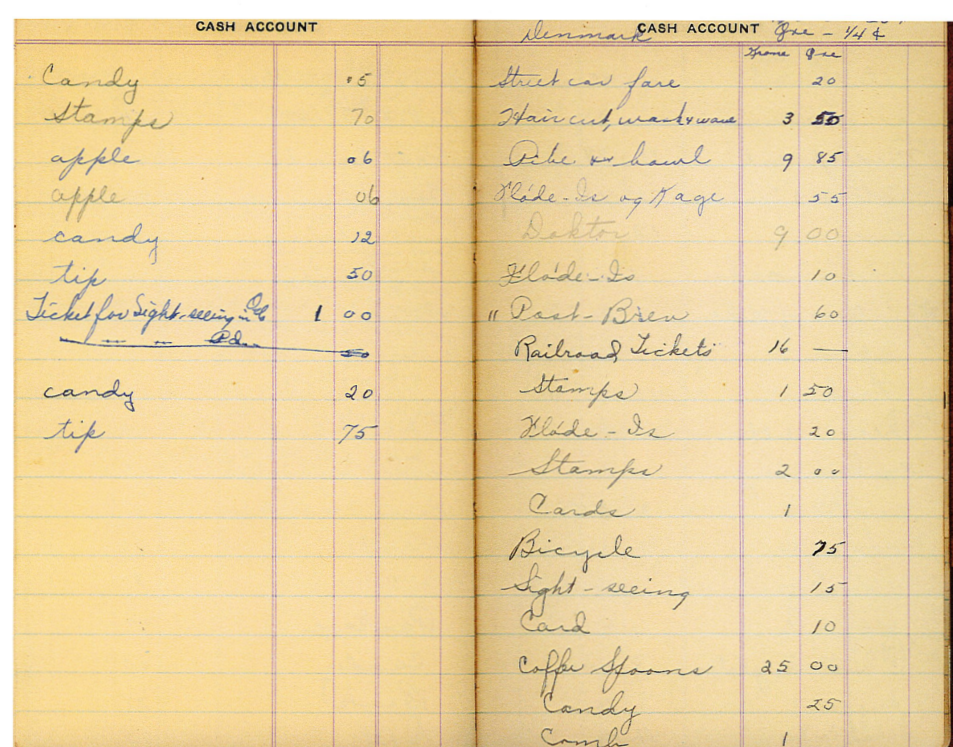 CASH ACCOUNT
Candy .05
Stamps 70
apple 06
apple 06
candy 12
tip 50
Ticket for Sight-seeing in 1 00
— — — Pd. 50
candy 20
tip 75
CASH ACCOUNT
Denmark Øre - 1/4¢
Krone Øre
Street car fare 20
Hair cut, wash & wave 3 50
Pibe bowl 9 85
Fløde-Is og Kage 55
Doktor 9 00
Fløde-Is 10
" Post-Brev 60
Railroad Tickets 16 —
Stamps 1 50
Fløde-Is 20
Stamps 2 00
Cards 1
Bicycle 75
Sight-seeing 15
Card 10
Coffee Spoons 25 00
Candy 25
Comb 1